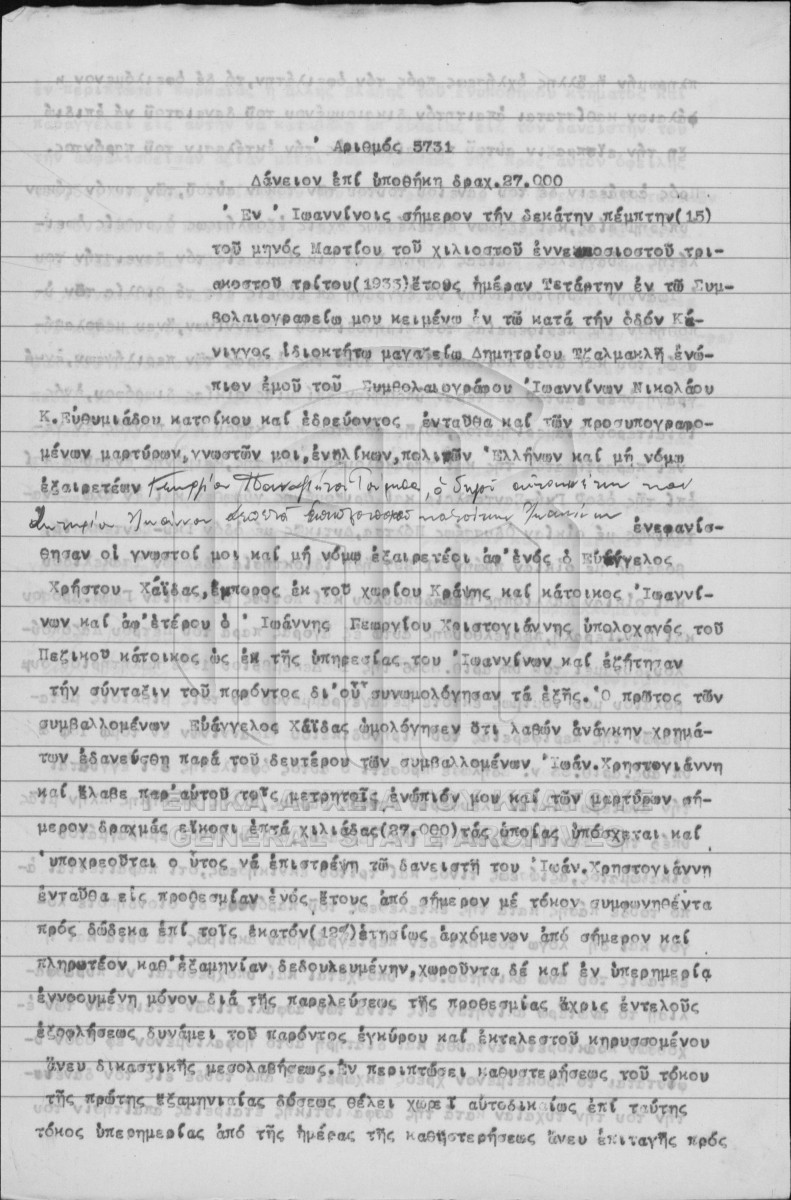 Ἀριθμός 5731
Δάνειον ἐπί ὑποθήκη δραχ.27.000
Ἐν Ἰωαννίνοις σήμερον τήν δεκάτην πέμπτην(15)
τοῦ μηνός Μαρτίου τοῦ χιλιοστοῦ ἐννεακοσιοστοῦ τρι-
ακοστοῦ τρίτου(1933)ἔτους ἡμέραν Τετάρτην ἐν τῶ Συμ-
βολαιογραφείω μου κειμένω ἐν τῶ κατά τήν ὁδόν Κά-
νιγγος ἰδιοκτήτω μαγαζείω Δημητρίου Τζαλμακλῆ ἐνώ-
πιον ἐμοῦ τοῦ Συμβολαιογράφου Ἰωαννίνων Νικολάου
Κ.Εὐθυμιάδου κατοίκου καί ἑδρεύοντος ἐνταῦθα καί τῶν προσυπογραφο-
μένων μαρτύρων,γνωστῶν μοι,ἐνηλίκων,πολιτῶν Ἑλλήνων καί μή νόμω
ἐξαιρετέων Γεωργίου
Σωτηρίου Ἰωάννου κατοίκων Ἰωαννίνων ἐνεφανίσ-
θησαν οἱ γνωστοί μοι καί μή νόμω ἐξαιρετέοι ἀφ'ἑνός ὁ Εὐάγγελος
Χρήστου Χαΐδας,ἔμπορος ἐκ τοῦ χωρίου Κράψης καί κάτοικος Ἰωαννί-
νων καί ἀφ'ἑτέρου ὁ Ἰωάννης Γεωργίου Χριστογιάννης ὑπολοχαγός τοῦ
Πεζικοῦ κάτοικος ὡς ἐκ τῆς ὑπηρεσίας του Ἰωαννίνων καί ἐζήτησαν
τήν σύνταξιν τοῦ παρόντος δι'οὗ συνωμολόγησαν τά ἑξῆς.Ὁ πρῶτος τῶν
συμβαλλομένων Εὐάγγελος Χαΐδας ὡμολόγησεν ὅτι λαβών ἀνάγκην χρημά-
των ἐδανείσθη παρά τοῦ δευτέρου τῶν συμβαλλομένων Ἰωάν.Χρηστογιάννη
καί ἔλαβε παρ'αὐτοῦ τοῖς μετρητοῖς ἐνώπιόν μου καί τῶν μαρτύρων σή-
μερον δραχμάς εἴκοσι ἑπτά χιλιάδας(27.000)τάς ὁποίας ὑπόσχεται καί
ὑποχρεοῦται ο ὗτος νά ἐπιστρέψη τῶ δανειστῆ του Ἰωάν.Χρηστογιάννη
ἐνταῦθα εἰς προθεσμίαν ἑνός ἔτους ἀπό σήμερον μέ τόκον συμφωνηθέντα
πρός δώδεκα ἐπί τοῖς ἑκατόν(12%)ἐτησίως ἀρχόμενον ἀπό σήμερον καί
πληρωτέον καθ'ἑξαμηνίαν δεδουλευμένην,χωροῦντα δέ καί ἐν ὑπερημερία
ἐννοουμένη μόνον διά τῆς παρελεύσεως τῆς προθεσμίας ἄχρις ἐντελοῦς
ἐξοφλήσεως δυνάμει τοῦ παρόντος ἐγκύρου καί ἐκτελεστοῦ κηρυσσομένου
ἄνευ δικαστικῆς μεσολαβήσεως.Ἐν περιπτώσει καθυστερήσεως τοῦ τόκου
τῆς πρώτης ἑξαμηνιαίας δόσεως θέλει χωρεῖ αὐτοδικαίως ἐπί ταύτης
τόκος ὑπερημερίας ἀπό τῆς ἡμέρας τῆς καθηστερήσεως ἄνευ ἐπιταγῆς πρός
ΓΕΝΙΚΑ ΑΡΧΕΙΑ ΤΟΥ ΚΡΑΤΟΥΣ
GENERAL STATE ARCHIVES